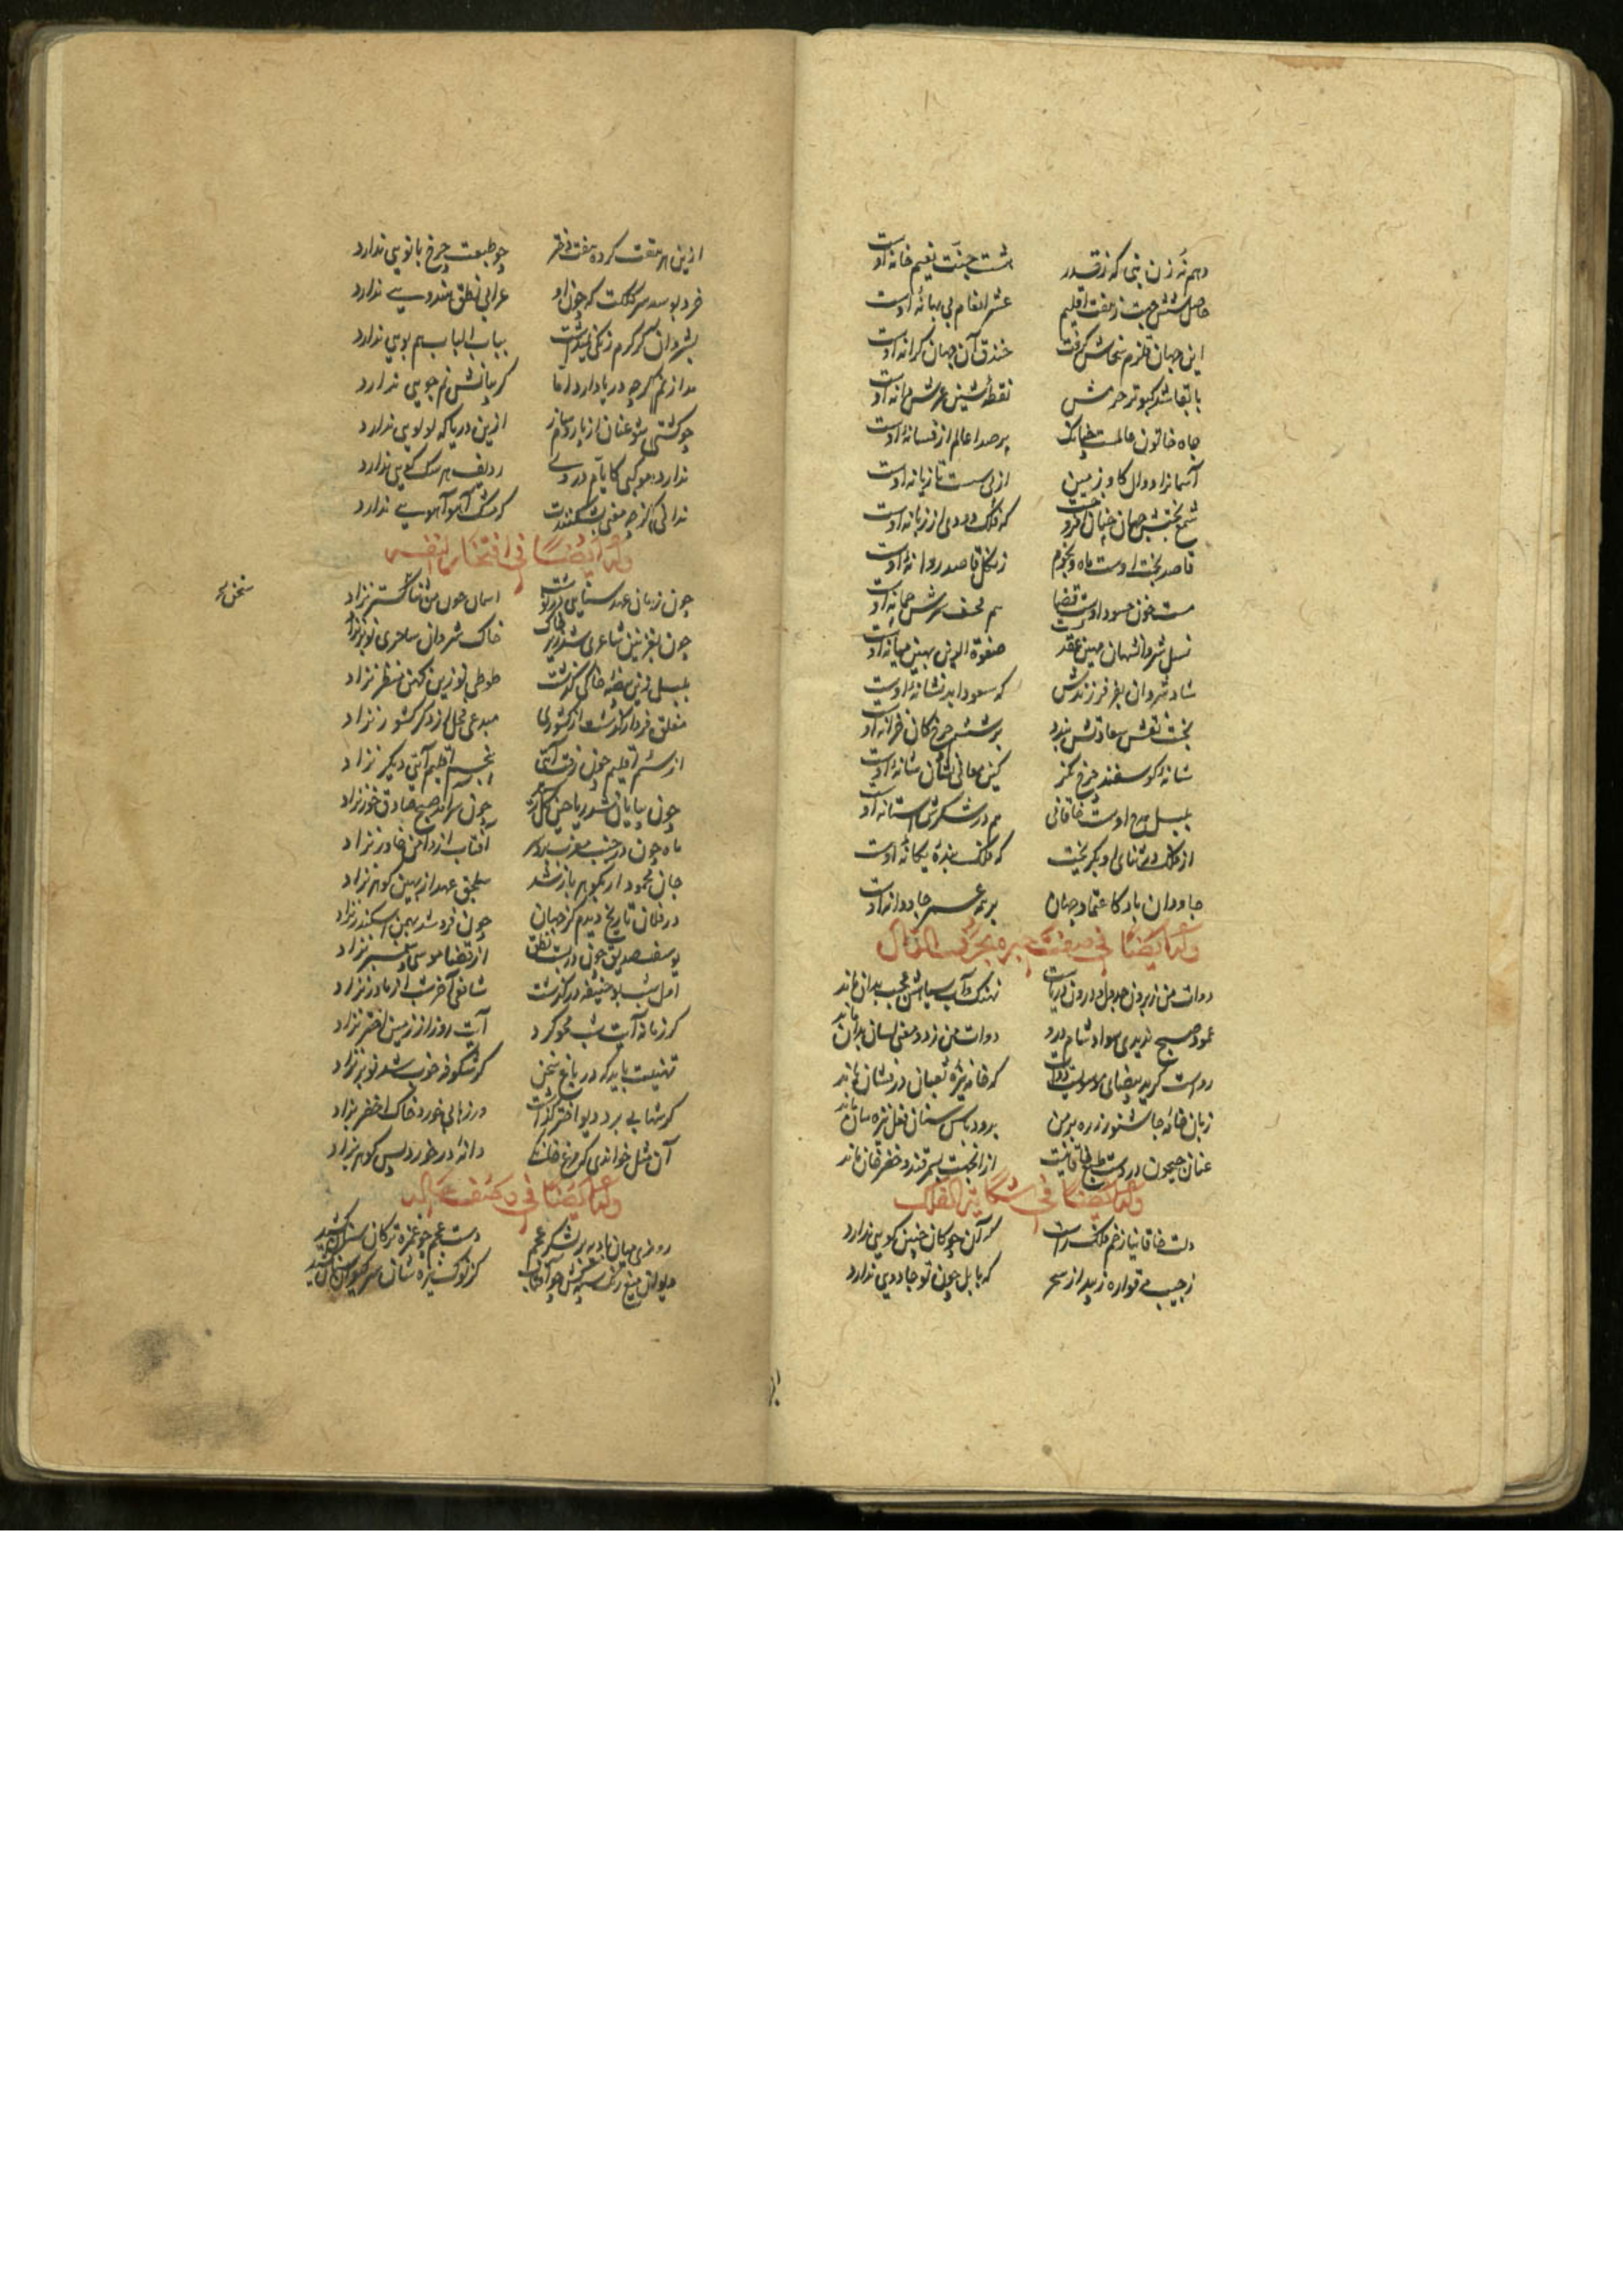 دهم نه زن نبی که ز قدر هشت جنت نعیم خانه اوست
حاصل شش جهت ز هفت اقلیم عشر انعام بی بهانه اوست
این جهان قلزم سخاش گرفت خندق آن جهان کرانه اوست
با لقا شد کبوتر حرمش نقطه شین عرش دانه اوست
جاه خاتون عالمست چنانک پر صدا عالم از فسانه اوست
آسمانرا دوال گاو زمین از پی تازیانه اوست
شمع بختش جهان چنان افروخت که فلک دودی از زبانه اوست
قاصد بخت اوست ماه و نجوم زنگل قاصد روانه اوست
مست خون حسود اوست قضا هم قحف سرش چمانه اوست
نسل شروانشهان مهین عقد صفوة الدین بهین میانه اوست
شاد شروان بفر فرزندش که سعود ابد نشانه اوست
بخت نقش سعادتش بندد بر ششم چرخ کان خزانه اوست
شانه گوسفند چرخ نگر کین معانی نشان شانه اوست
بلبل مدح اوست خاقانی هم در شکرش آستانه اوست
از ملک در ثنای او بگریخت که ملک بنده یگانه اوست
جاودان باد کاعتماد جهان بر همه عمر جاودانه اوست
وله ایضا فی صفت حبره
دوات من ز برون جدول و درون دریاست نهنگ و آب سیاهش عجب بدان ماند
عمود صبح ندیدی سواد شام درو دوات من ز دو معنی لسان بدان ماند
رواست گر ید بیضای موسویست دوات که خامه نیزه ثعبان درفشان ماند
زبان خامه ز ره بر من برود
عنان جیحون در دست طبع خاقانیست از آنجهت بسمرقند و خضرخان ماند
وله ایضا فی شکایة الفلک
دلت خاقانیا زخم فلک راست که آن چوگان چنین گویی ندارد
ز جیب می قواره زیبد از سحر که بابل چون تو جادویی ندارد
ازین هر هفت کرده هفت دختر چو طبعت چرخ بانویی ندارد
خرد بوسد سر کلکت که چون او عرابی نطق هندویی ندارد
بشروان گر کرم رنگی نمیداشت بباب الباب هم بویی ندارد
مدار نم گرچه در پا دارد اما گریبانش نم جویی ندارد
چو کشتی شو عنان از پار دم ساز ازین دریا که لولویی ندارد
ندارد موکبی کایام در وی ردیف هر سگ آهویی ندارد
ندانی کز چه معنی بشکنندت که مشک آهو آهویی ندارد
وله ایضا فی افتخار لنفسه
چون زمان عهد سنایی در نوشت اسمان چون من ثنا گستر نزاد
چون بغزنین شاعری شد زیر خاک خاک شروان ساحری نوبر نزاد
بلبلی زین بیضه خاکی گذشت طوطی نو زین کهن منظر نزاد
مفلق فرد ار گذشت از کشوری مبدعی فحل از دگر کشور نزاد
از سیم اقلیم چون رفت آیتی پنجم اقلیم آیتی دیگر نزاد
چون بپایان شد ریاحین گل رسید چون سرآمد صبح صادق خور نزاد
ماه چون در جیب مغرب برد سر آفتاب از دامن خاور نزاد
جان محمود ار بگوهر باز شد سلجق عهد از بهین گوهر نزاد
در فلان تاریخ دیدم کز جهان چون فرو شد بهمن اسکندر نزاد
یوسف صدیق چون در بست نطق از قضا موسی پیغمبر نزاد
اول شب بو حنیفه در گذشت شافعی آخر شب از مادر نزاد
گر زمانه آیت شب محو کرد آیت روز از زمین اختر نزاد
تهنیت باید که در باغ سخن گر شکوفه خوب شد نوبر نزاد
گر شهابی برد دیو اختر گذاشت ور زهابی خورد خاک اخضر نزاد
آن مثل خواندی که مرغ خانگی دانه در خورد پس گوهر نزاد
سخن ح
وله ایضا فی وصف حاله
روزی میان بادیه بر لشکر عجم دست عجم چو غمزه ترکان سنان کشید
دیوان میغ رنگ سنان کش چو آفتاب کز نوک نیزه شان سر کیوان